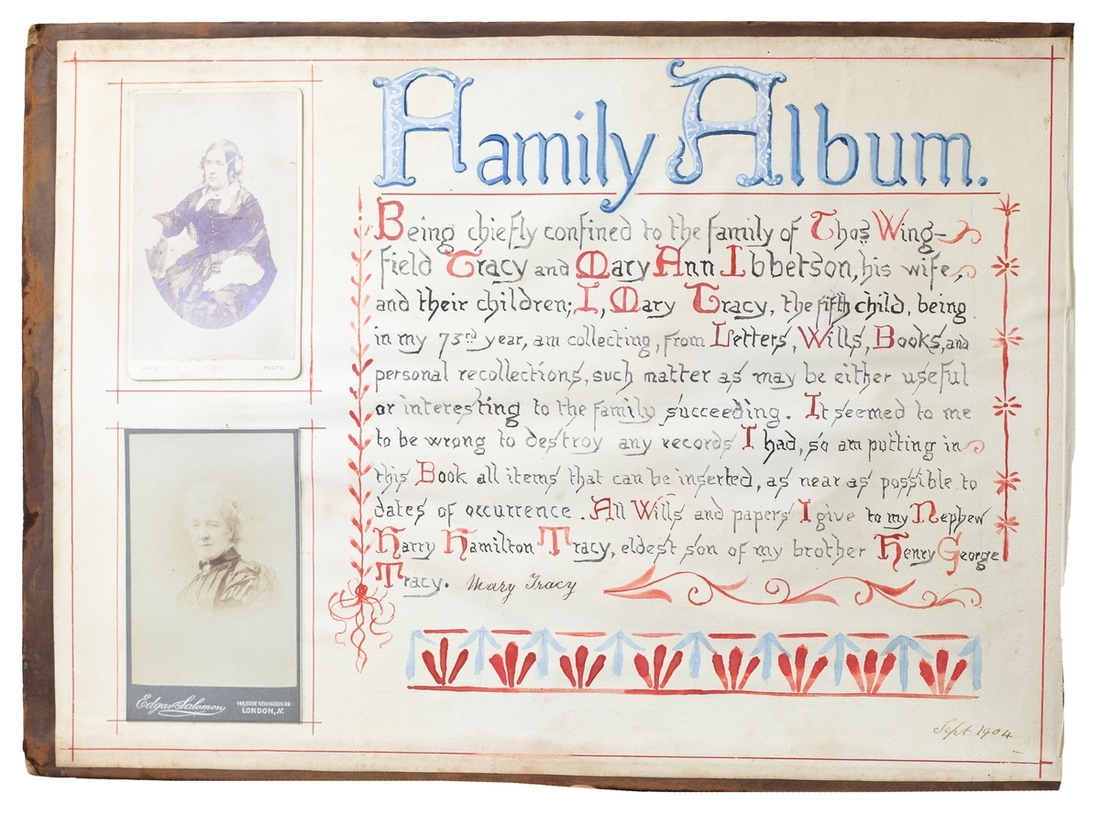 Family Album.
Being chiefly confined to the family of Thos Wing-
field Tracy and Mary Ann Ibbetson, his wife,
and their children; I, Mary Tracy, the fifth child, being
in my 73rd year, am collecting, from Letters, Wills, Books, and
personal recollections, such matter as may be either useful
or interesting to the family succeeding. It seemed to me
to be wrong to destroy any records I had, so am putting in
this Book all items that can be inserted, as near as possible to
dates of occurrence. All Wills and papers I give to my Nephew
Harry Hamilton Tracy, eldest son of my brother Henry George
Tracy. Mary Tracy
Sept 1904
PHOTO.
Edgar Salomon
LONDON, N.